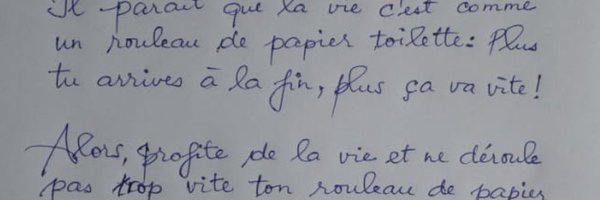 Il paraît que la vie c'est comme
un rouleau de papier toilette: Plus
tu arrives à la fin, plus ça va vite!
Alors, profite de la vie et ne déroule
pas trop vite ton rouleau de papier